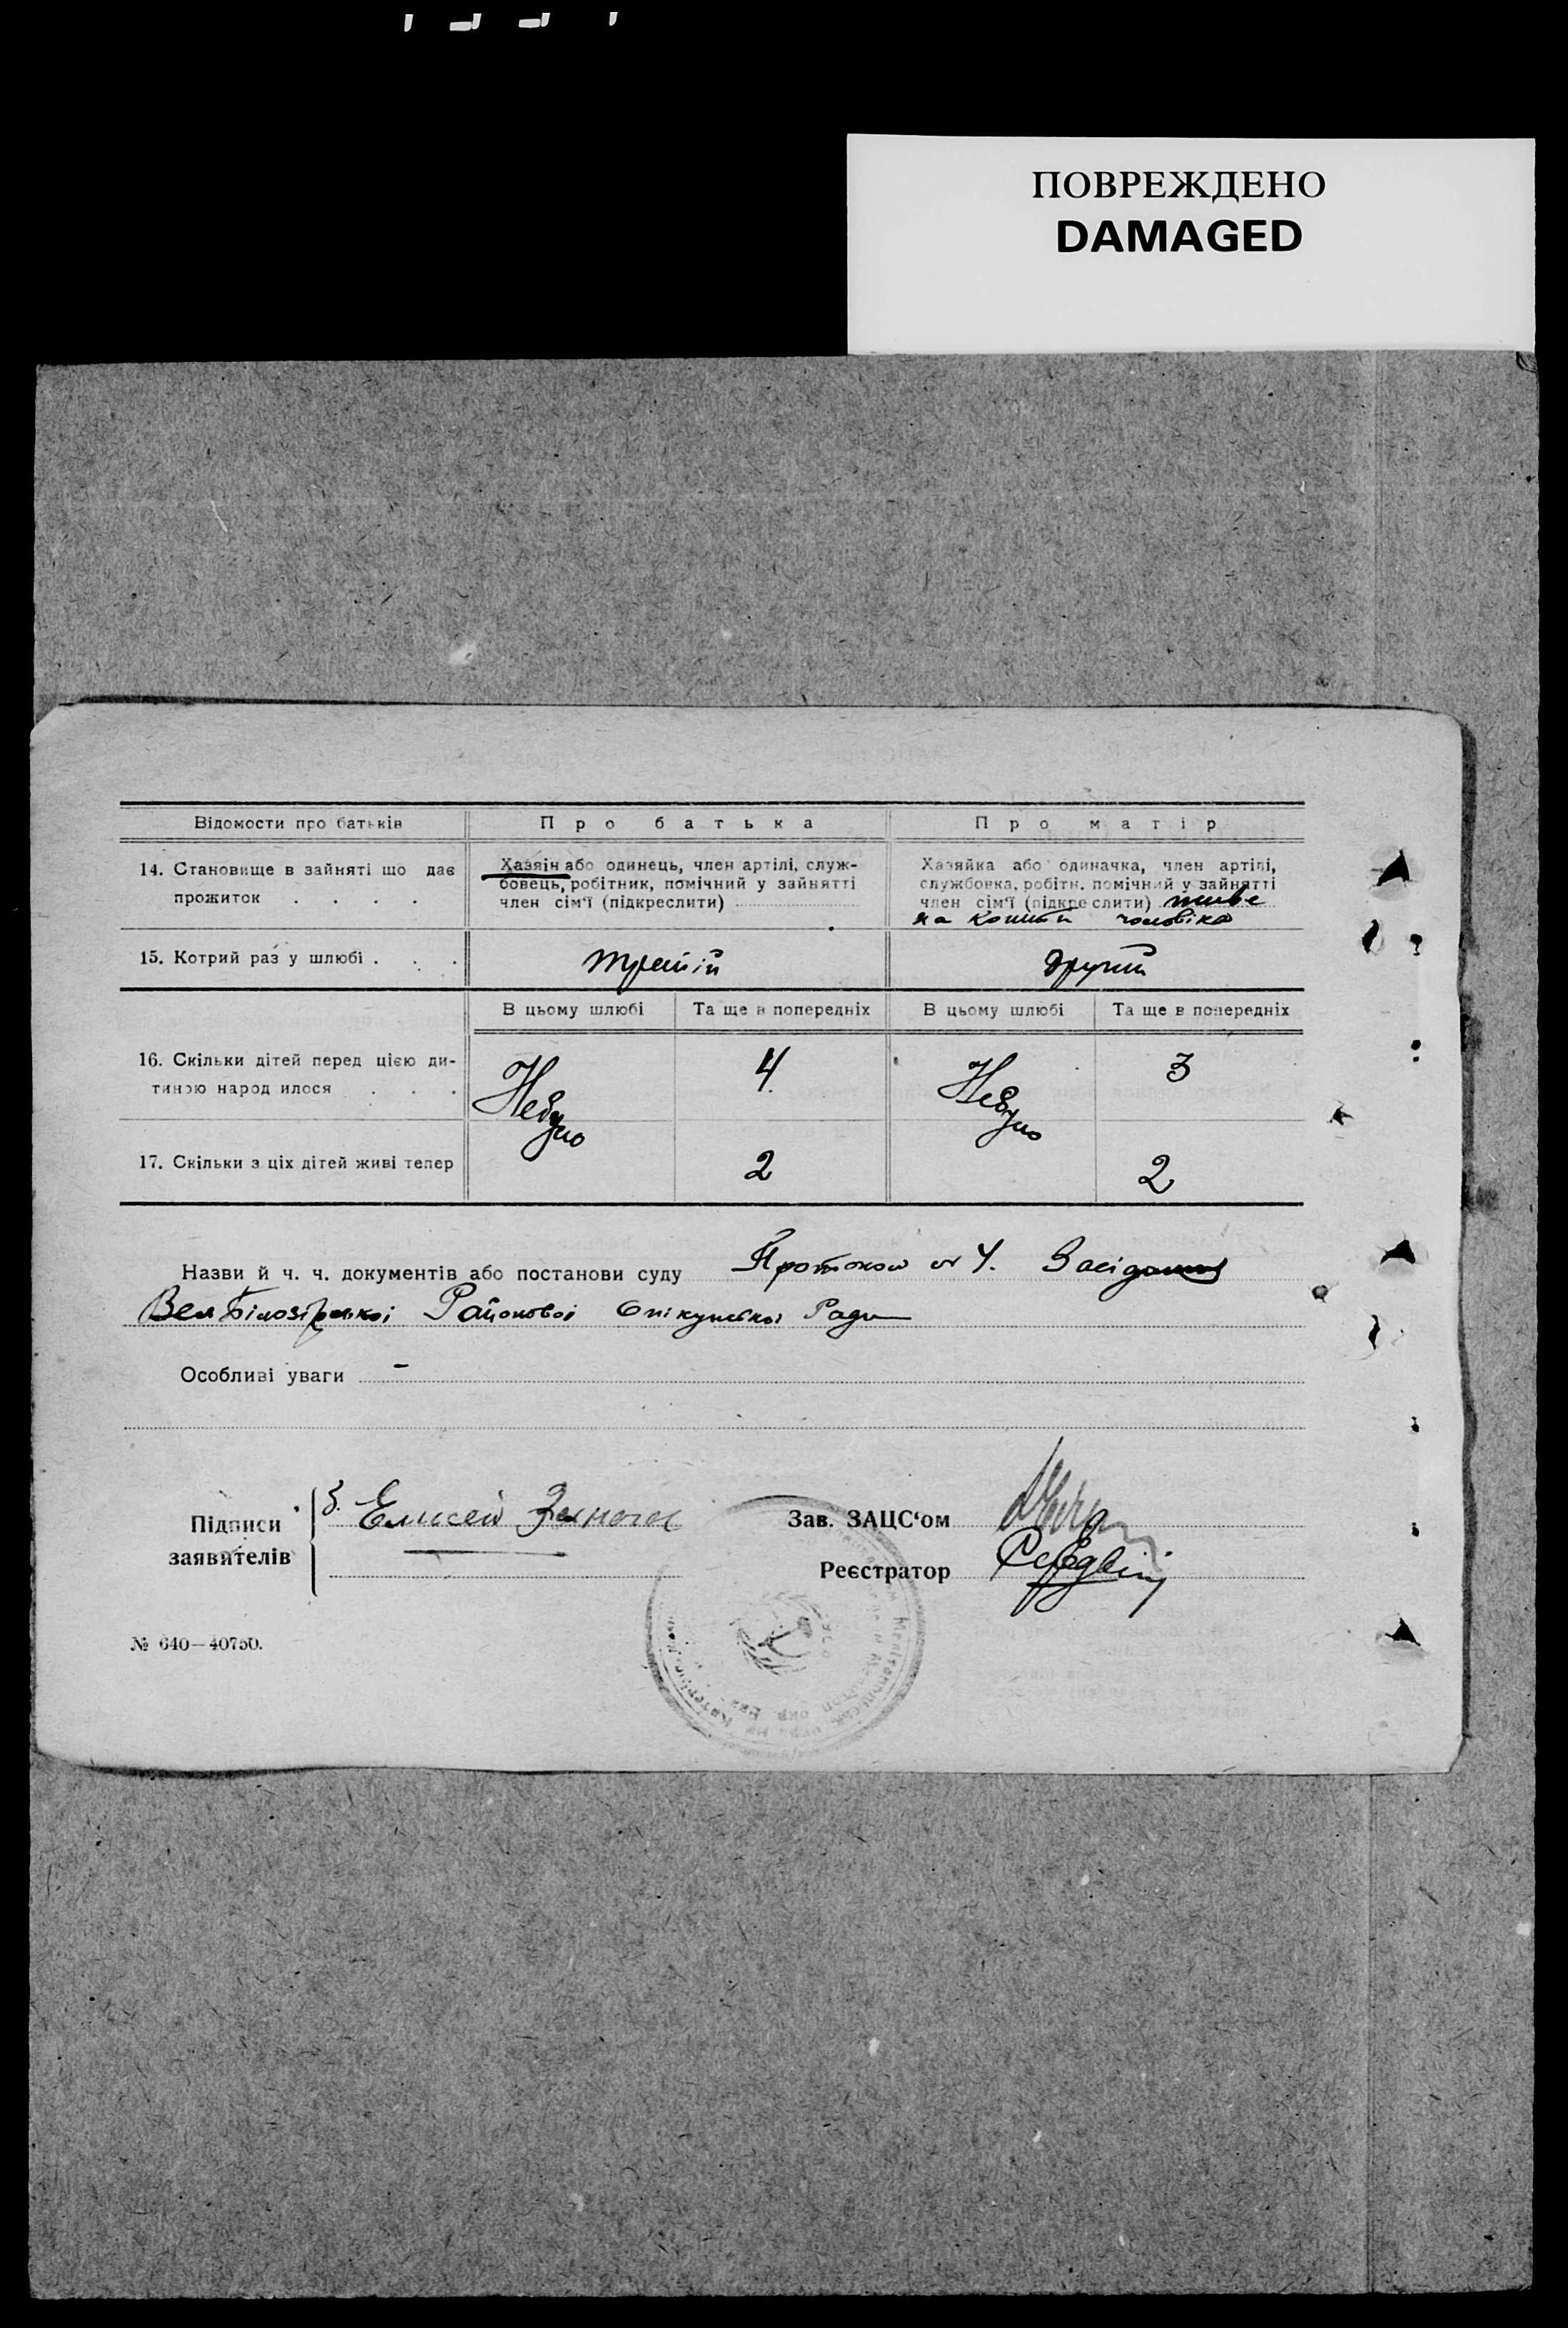 ПОВРЕЖДЕНО
DAMAGED
Відомости про батьків
Про батька
Про матір
14. Становище в зайняті що дає
прожиток . . . .
Хазяін або одинець, член артілі, служ-
бовець, робітник, помічний у зайнятті
член сім'ї (підкреслити)
Хазяйка або одиначка, член артілі,
службовка, робітн. помічний у зайнятті
член сім'ї (підкреслити) живе
на кошти чоловіка
15. Котрий раз у шлюбі . . .
третій
другий
В цьому шлюбі
Та ще в попередніх
В цьому шлюбі
Та ще в попередніх
16. Скільки дітей перед цією ди-
тиною народилося . . .
Небуло
4
Небуло
3
17. Скільки з ціх дітей живі тепер
2
2
Назви й ч. ч. документів або постанови суду Протокол № 4. Засідання
Вел Білозірської Районової Опікунської Ради
Особливі уваги -
Підписи
заявителів
Елисей
Зав. ЗАЦС‘ом
Реєстратор
№ 640—40750.